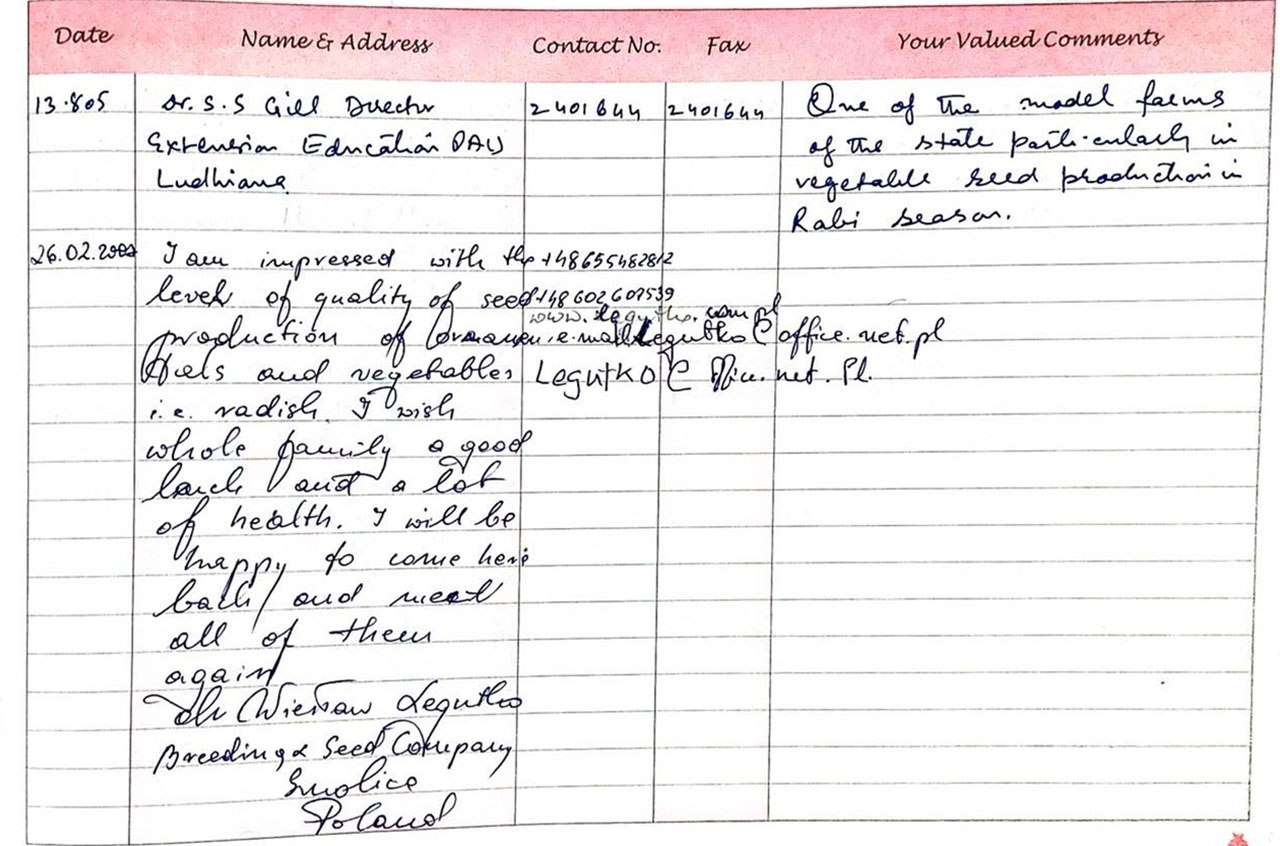 Date Name & Address Contact No. Fax Your Valued Comments
13.805 Dr. S.S Gill Director 2401644 2401644 One of the model farms
Extension Education PAU of the state particularly in
Ludhiana vegetable seed production in
Rabi season.
26.02. I am impressed with the +48655482812
level of quality of seed +48602607539
www.legutko.com.pl
production of e.mail Legutko@office.net.pl
and vegetables Legutko@office.net.Pl.
i.e. radish. I wish
whole family a good
luck and a lot
of health. I will be
happy to come here
back and meet
all of them
again
dr Wiesław Legutko
Breeding & Seed Company
Smolice
Poland